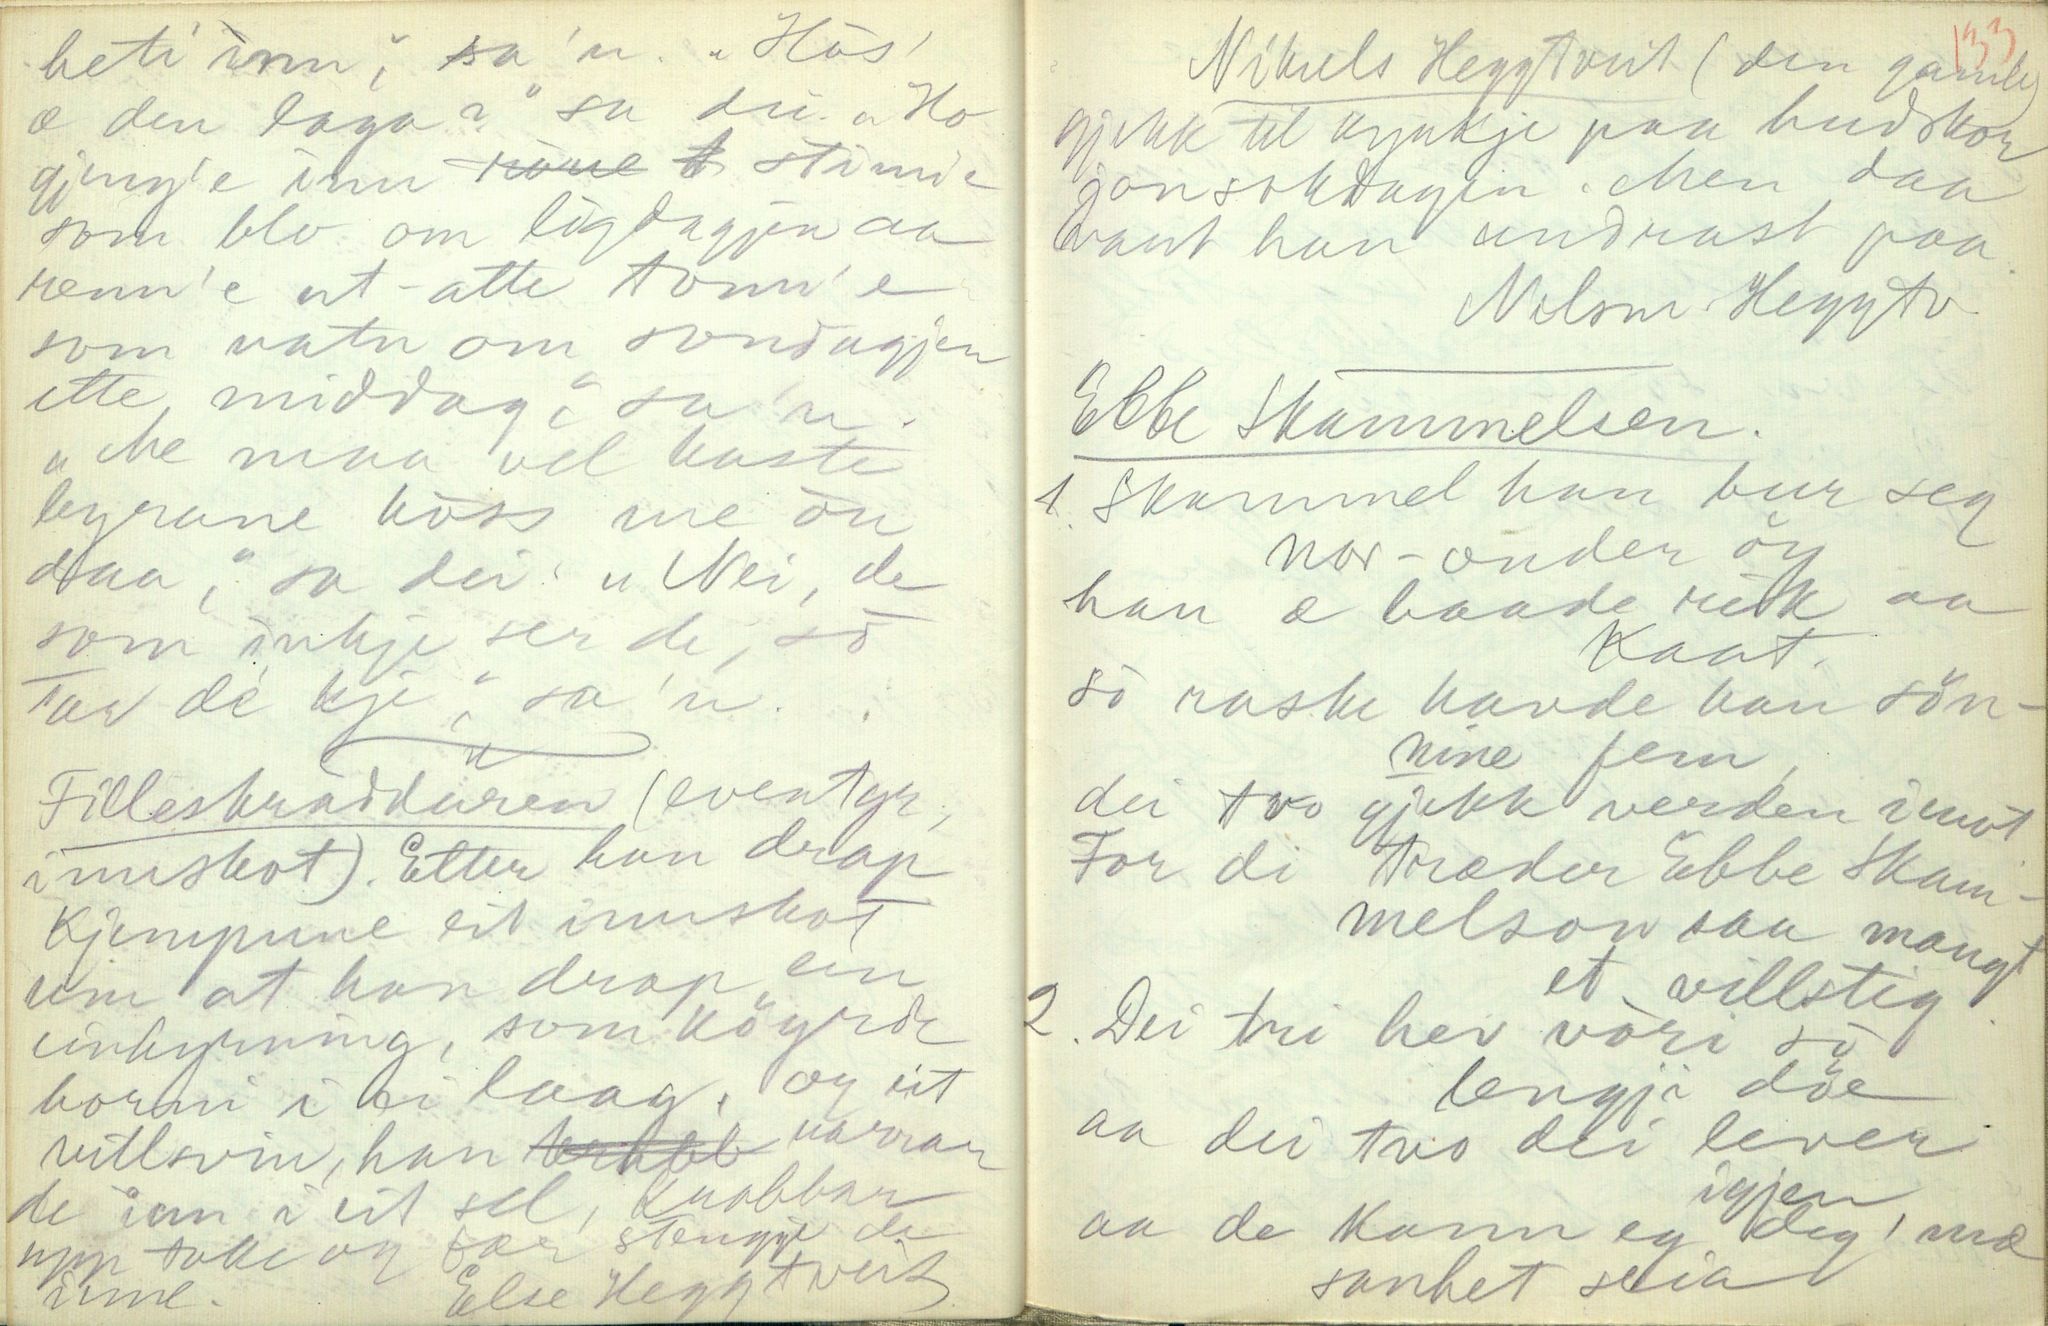 heti inn," sa'n. „Hòs'
æ den laga?" sa dei. „Ho
gjeng'e inn stimi'e
som blo om ligdagjen aa
renn'e ut-atte tonn'e
som vatn om sondagjen
ette middag," sa'n.
„Me maa vel kaste
kyrane hòss me òn
daa," sa dei. „Nei, de
som inkje ser de, sò
tar de kje," sa'n.
Filleskraddaren (eventyr,
innskot). Etter han drap
Kjempune eit innskot
um at han drap ein
einhyrning, som köyrde
horni i ei laag, og eit
villsvin, han narrar
de inn i eit sel, knabbar
upp take og fær stengje de
inne. Else Heggtveit
133
Nikuls Heggtveit (den gamle)
gjekk til kyrkje paa hudskor
jonsokdagen. Men daa
vart han undrast paa.
Nilsine Heggtv.
Ebbe Skammelsen.
1. Skammel han bur seg
nor-onder öy
han æ baade rik aa
Kaat.
sò raske havde han sön-
nine fem,
dei tvo gjekk verden imot
For di træder Ebbe Skam-
melson saa mangt
et villstig.
2. Dei tri hev vòri sò
lengji döe
aa dei tvo dei lever
igjen
aa de kann eg deg mæ
sanhet seia